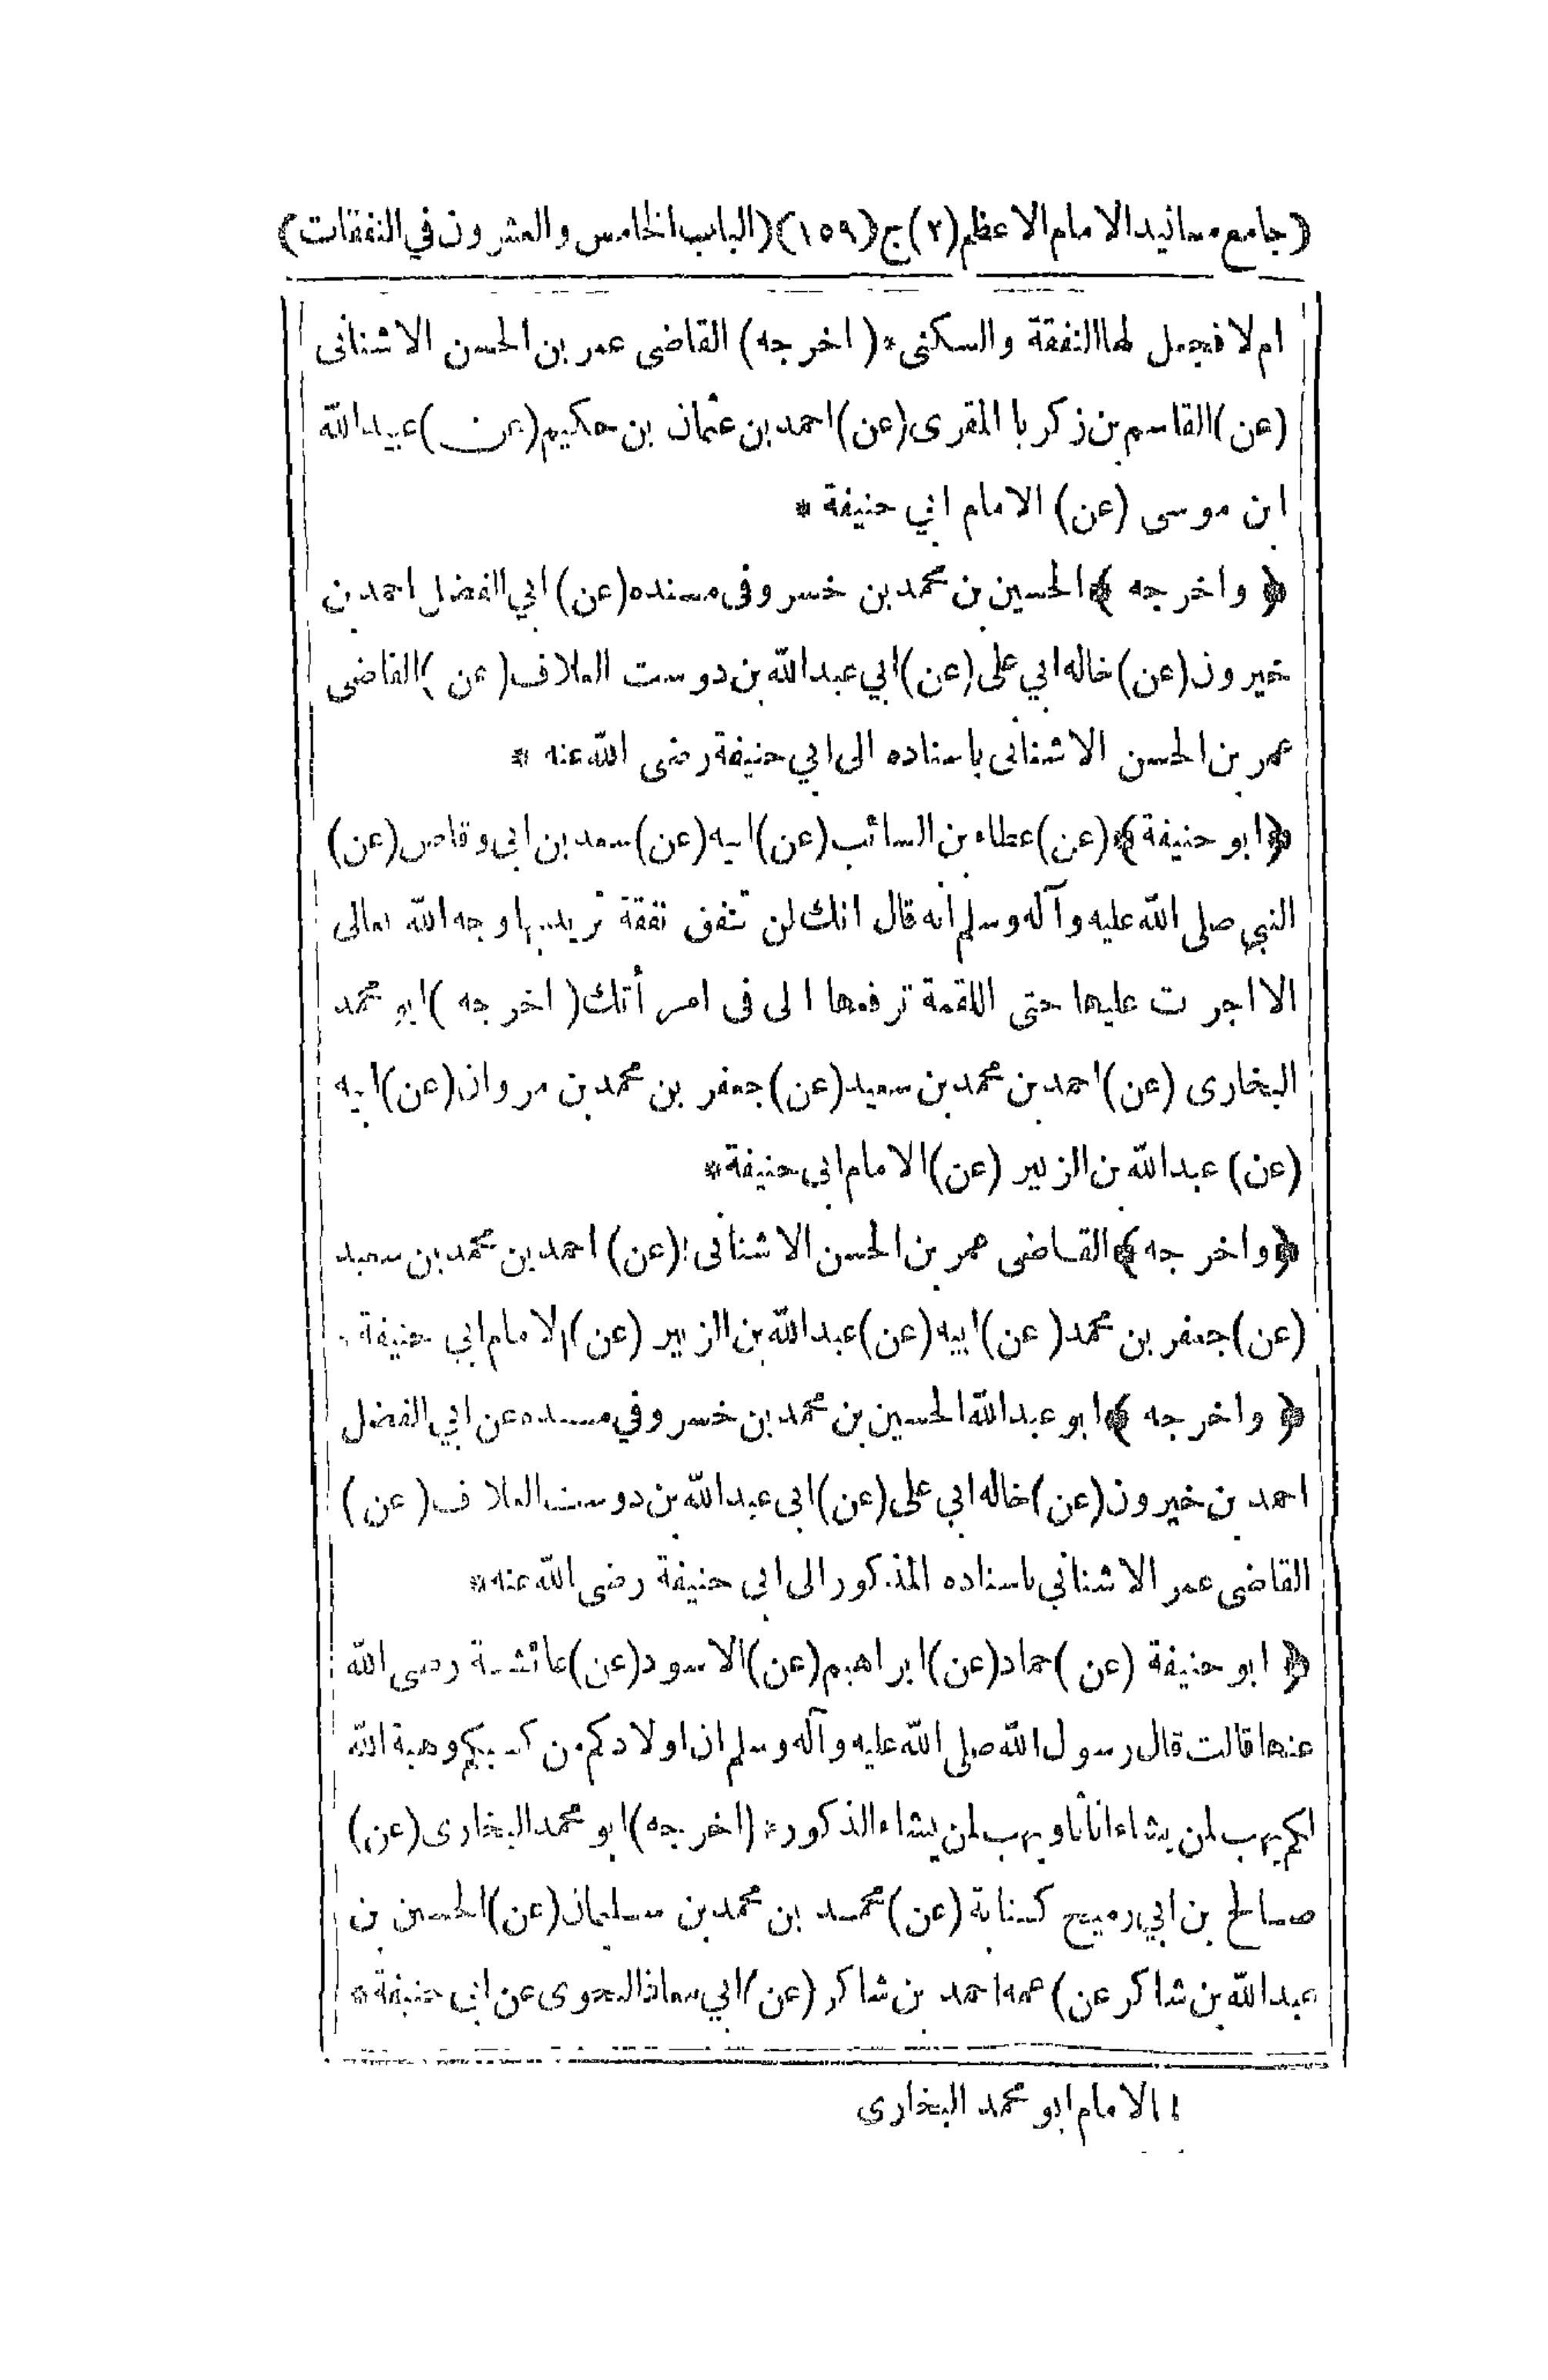 (جامع مسانيد الامام الاعظم (٢) ج (١٥٩) (الباب الخامس والعشرون في النفقات)
ام لا فجعل لها النفقة والسكنى * (اخرجه) القاضى عمر بن الحسن الاشنانى
(عن) القاسم بن زكريا المقرى (عن) احمد بن عثمان بن حكيم (عن) عبيد الله
ابن موسى (عن) الامام ابي حنيفة *
﴿ واخرجه ﴾ الحسين بن محمد بن خسرو فى مسنده (عن) ابي الفضل احمد بن
خيرون (عن) خاله ابي على (عن) ابي عبد الله بن دوست العلاف (عن) القاضى
عمر بن الحسن الاشنانى باسناده الى ابي حنيفة رضى الله عنه *
﴿ابو حنيفة﴾ (عن) عطاء بن السائب (عن) ابيه (عن) سعد بن ابى وقاص (عن)
النبي صلى الله عليه وآله وسلم أنه قال انك لن تنفق نفقة تريد بها وجه الله تعالى
الا اجرت عليها حتى اللقمة ترفعها الى فى امرأتك (اخرجه) ابو محمد
البخارى (عن) احمد بن محمد بن سعيد (عن) جعفر بن محمد بن مروان (عن) ابيه
(عن) عبد الله بن الزبير (عن) الامام ابى حنيفة *
﴿واخرجه﴾ القاضى عمر بن الحسن الاشنانى (عن) احمد بن محمد بن سعيد
(عن) جعفر بن محمد (عن) ابيه (عن) عبد الله بن الزبير (عن) الامام ابي حنيفة
﴿ واخرجه ﴾ ابو عبد الله الحسين بن محمد بن خسرو في مسنده عن ابي الفضل
احمد بن خيرون (عن) خاله ابي على (عن) ابى عبد الله بن دوست العلاف (عن)
القاضى عمر الاشناني باسناده المذكور الى ابى حنيفة رضى الله عنه *
﴿ ابو حنيفة (عن) حماد (عن) ابراهيم (عن) الاسود (عن) عائشة رضى الله
عنها قالت قال رسول الله صلى الله عليه وآله وسلم ان اولادكم من كسبكم وهبة الله
لكم يهب لمن يشاء اناثا ويهب لمن يشاء الذكور * (اخرجه) ابو محمد البخارى (عن)
صالح بن ابي رميح كتابة (عن) محمد بن محمد بن سليمان (عن) الحسين بن
عبد الله بن شاكر عن) عمه احمد بن شاكر (عن) ابي معاذ النحوى عن ابى حنيفة *
١ الامام ابو محمد البخارى